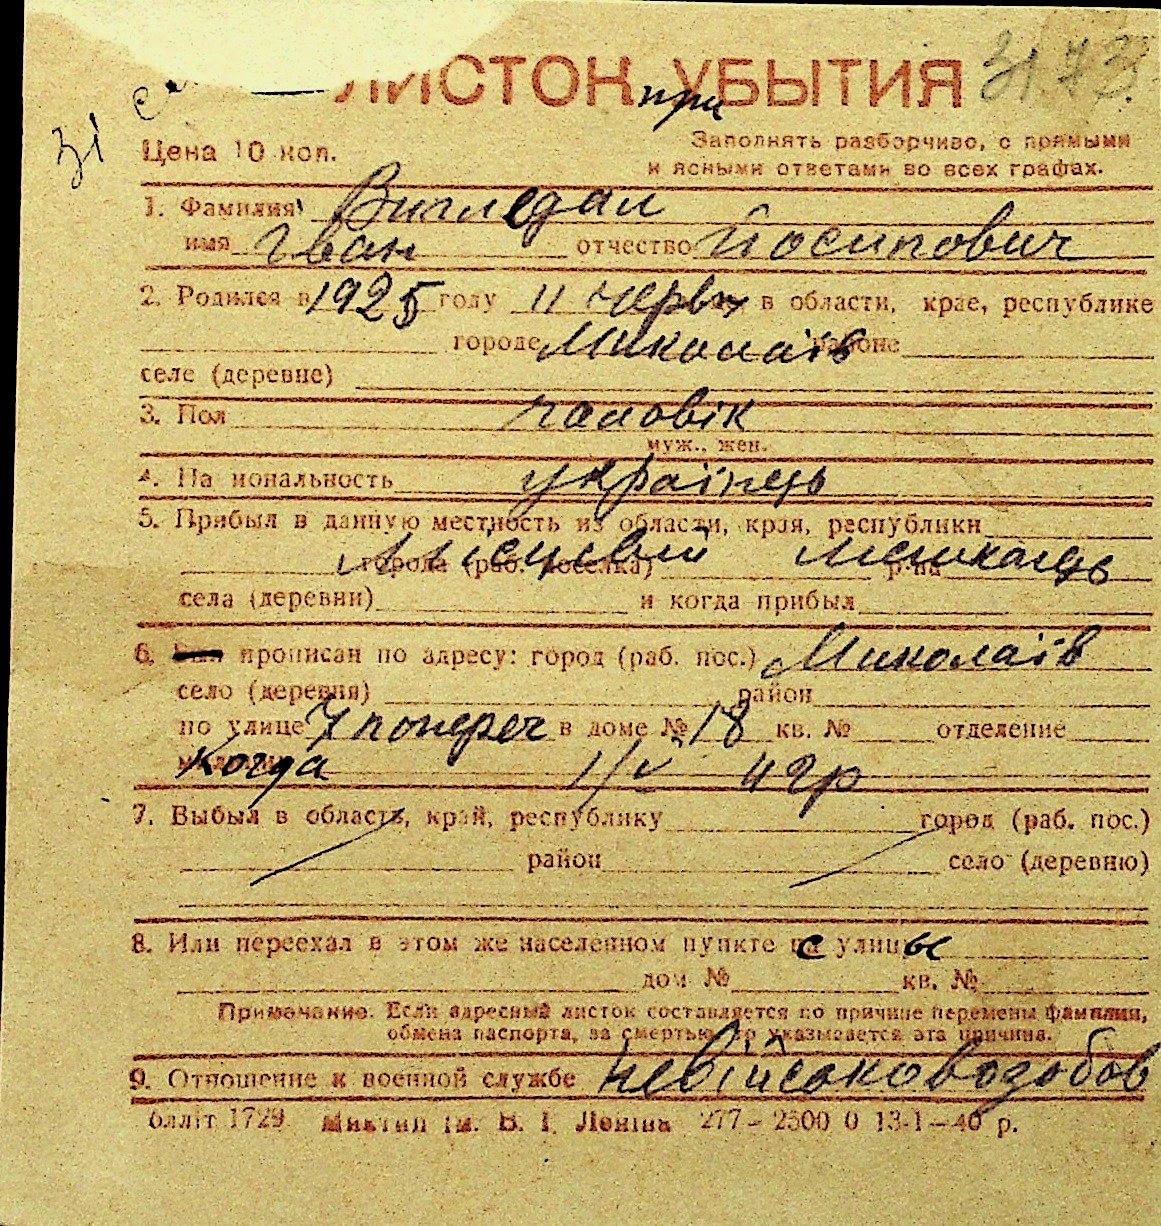 31
ЛИСТОК УБЫТИЯ 3173
при
Цена 10 коп.
Заполнять разборчиво, с прямыми
и ясными ответами во всех графах.
1. Фамилия Вигледал
имя Іван отчество Йосипович
2. Родился в 1925 году 11 червн в области, крае, республике
городе Миколаїв районе
селе (деревне)
3. Пол чаловік
муж., жен.
4. На иональность українець
5. Прибыл в данную местность из области, края, республики
города (раб. поселка) Місцевий р-на мешканць
села (деревни) и когда прибыл
6. Был прописан по адресу: город (раб. пос.) Миколаїв
село (деревня) район
по улице 7 попереч в доме № 18 кв. № отделение
Когда 1/V 41 гр
7. Выбыл в область, край, республику город (раб. пос.)
район село (деревню)
8. Или переехал в этом же населенном пункте с улицы
дом № кв. №
Примечание. Если адресный листок составляется по причине перемены фамилии,
обмена паспорта, за смертью, то указывается эта причина.
9. Отношение к военной службе невійськовозобов
блліт 1729 Миктип ім. В. І. Леніна 277-2500 0 13-1-40 р.